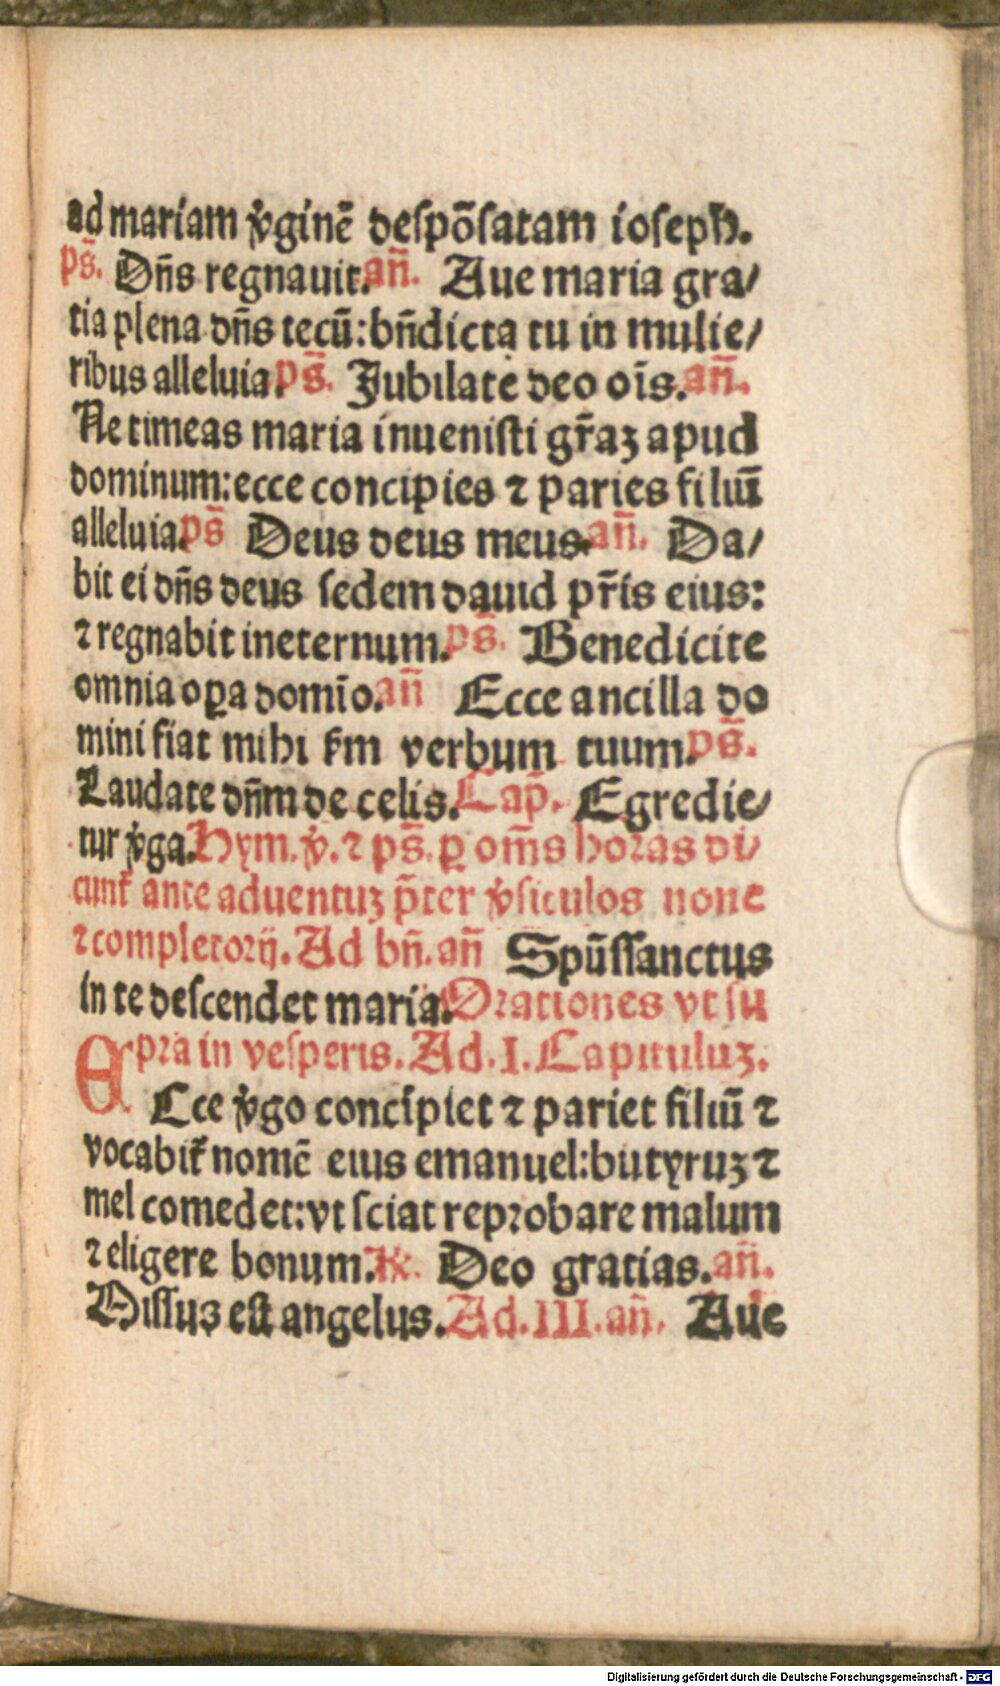 ad mariam v̾ginē despōsatam ioseph.
ps̄. Dn̄s regnauit. an̄. Aue maria gra/
tia plena dn̄s tecū: bn̄dicta tu in mulie/
ribus alleluia. ps̄. Jubilate deo oīs. an̄.
Ne timeas maria inuenisti gr̄aꝫ apud
dominum: ecce concipies ⁊ paries filiū
alleluia. ps̄ Deus deus meus. an̄. Da/
bit ei dn̄s deus sedem dauid pr̄is eius:
⁊ regnabit ineternum. ps̄. Benedicite
omnia oꝑa domīo. an̄ Ecce ancilla do
mini fiat mihi ẜm verbum tuum. ps̄.
Laudate dn̄m de celis. Cap̄. Egredie/
tur v̾ga. Hym. v̾. ⁊ ps̄. ꝑ om̄s horas di/
cunt᷑ ante aduentuꝫ p̄ter v̾siculos none
⁊ completorij. Ad bn̄. an̄ Spūssanctus
in te descendet maria. Orationes vt su
pra in vesperis. Ad. I. Capituluꝫ.
ECce v̾go concipiet ⁊ pariet filiū ⁊
vocabit᷑ nomē eius emanuel: butyruꝫ ⁊
mel comedet: vt sciat reprobare malum
⁊ eligere bonum. ℟. Deo gratias. an̄.
Missus est angelus. Ad. III. an̄. Aue
Digitalisierung gefördert durch die Deutsche Forschungsgemeinschaft - DFG